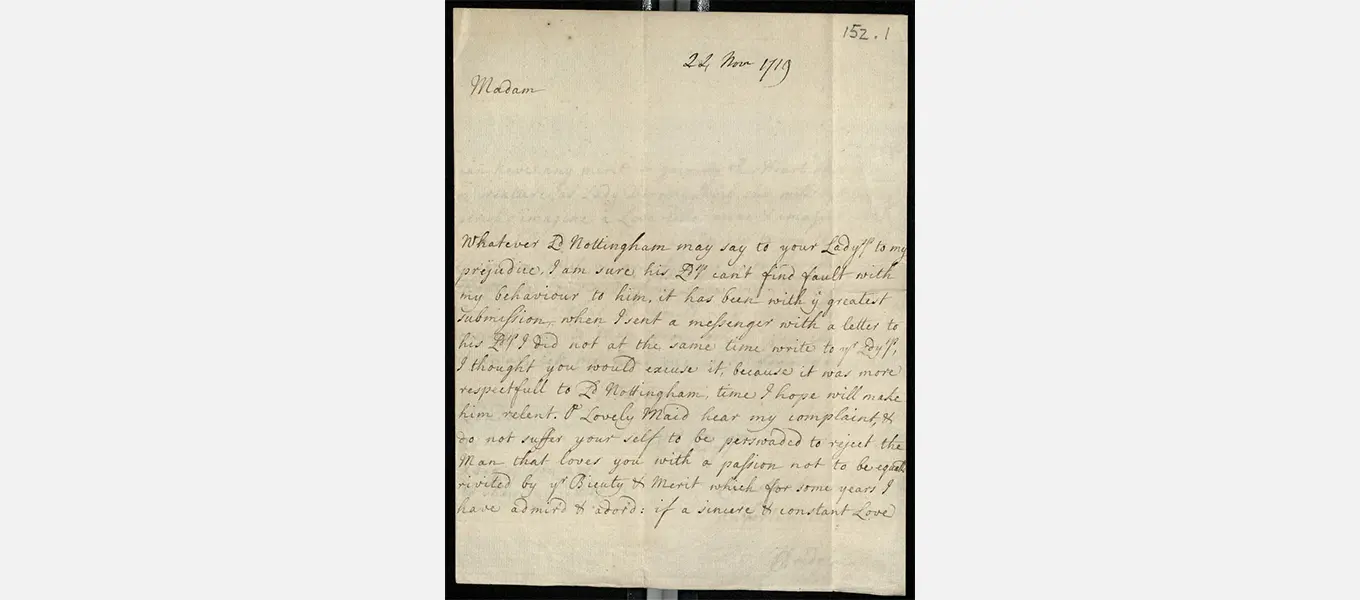 152.1
22 Nov 1719
Madam
Whatever Ld Nottingham may say to your Ladyp to my
prejudice, I am sure his Ldp can't find fault with
my behaviour to him, it has been with ye greatest
submission, when I sent a messenger with a letter to
his Ldp I did not at the same time write to yr Ldyp,
I thought you would excuse it, because it was more
respectfull to Ld Nottingham, time I hope will make
him relent. Lovely Maid hear my complaint, &
do not suffer your self to be perswaded to reject the
Man that loves you with a passion not to be equal
rivited by yr Bieuty & Merit which for some years I
have admir'd & ador'd: if a sincere & constant Love